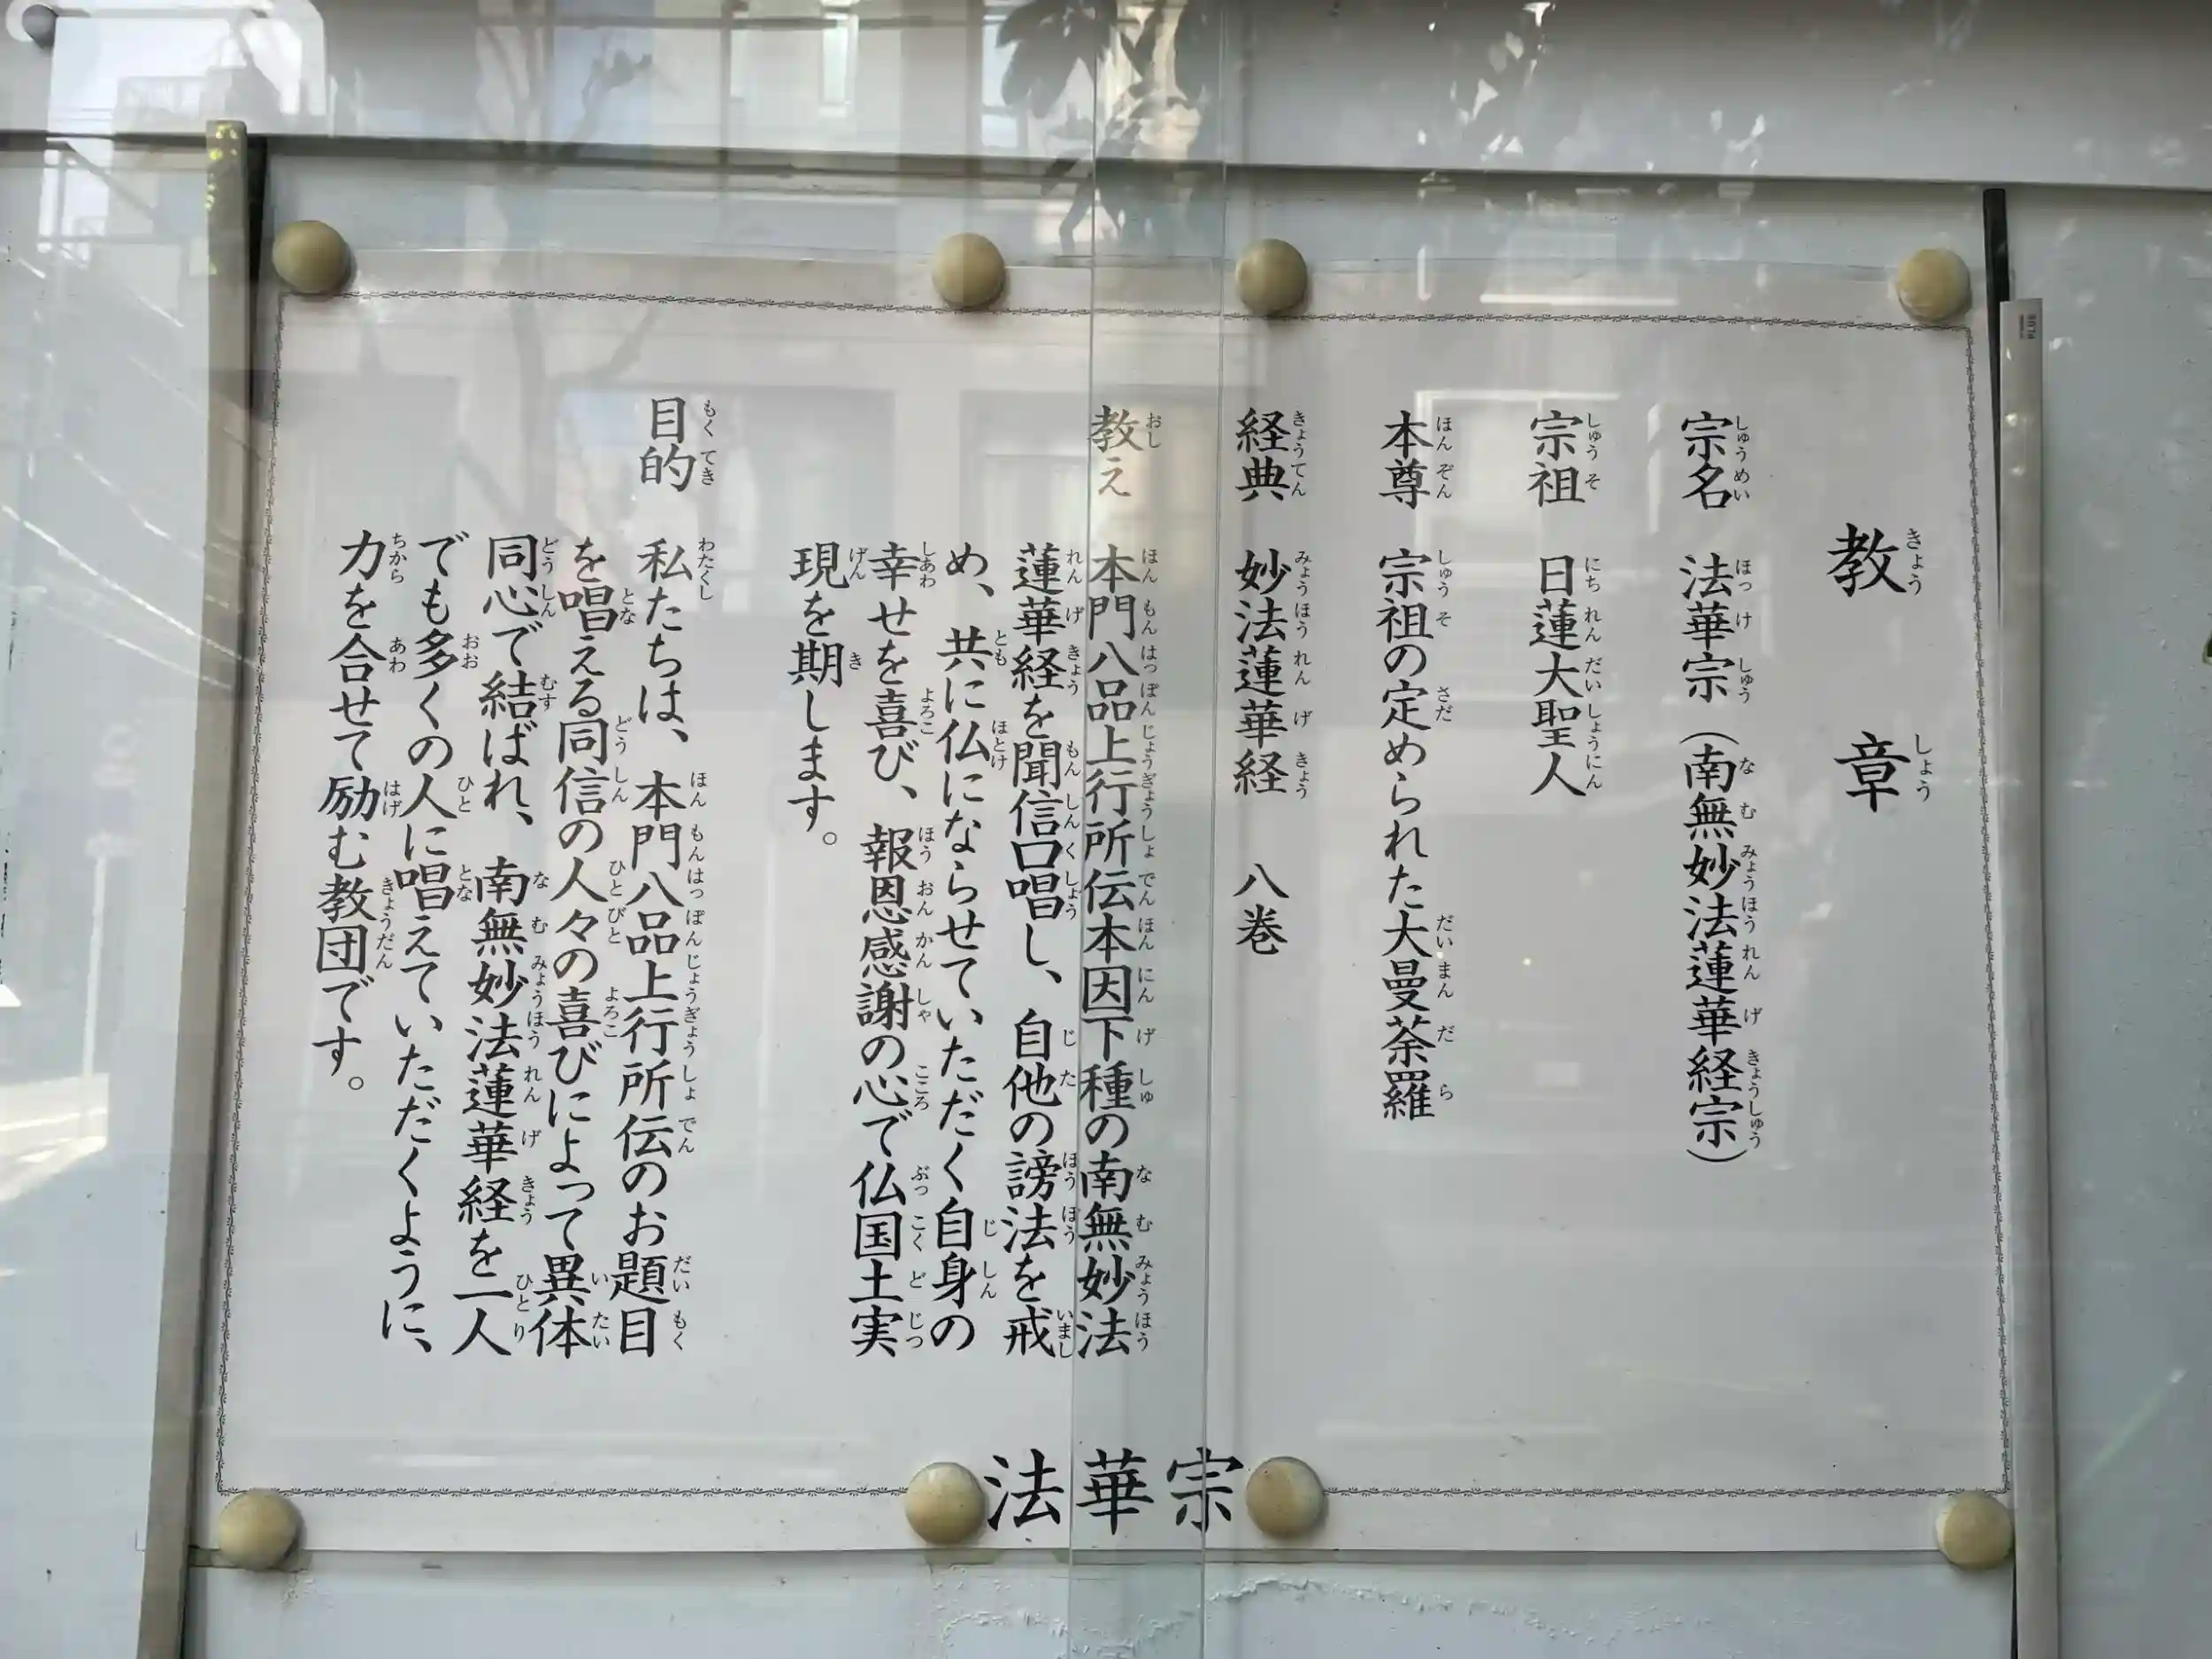 教章
宗名 法華宗（南無妙法蓮華経宗）
宗祖 日蓮大聖人
本尊 宗祖の定められた大曼荼羅
経典 妙法蓮華経 八巻
教え 本門八品上行所伝本因下種の南無妙法
蓮華経を聞信口唱し、自他の謗法を戒
め、共に仏にならせていただく自身の
幸せを喜び、報恩感謝の心で仏国土実
現を期します。
目的 私たちは、本門八品上行所伝のお題目
を唱える同信の人々の喜びによって異体
同心で結ばれ、南無妙法蓮華経を一人
でも多くの人に唱えていただくように、
力を合せて励む教団です。
法華宗